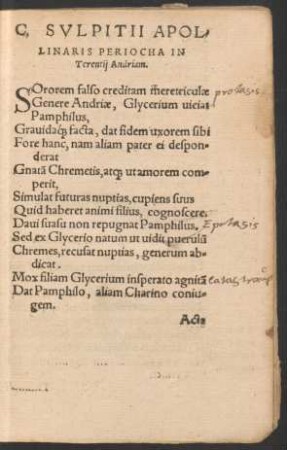 C. SVLPITII APOL-
LINARIS PERIOCHA IN
Terentij Andriam.
SOrorem falso creditam meretriculæ protasis
Genere Andriæ, Glycerium uiciat
Pamphilus,
Grauidaq́; facta, dat fidem uxorem sibi
Fore hanc, nam aliam pater ei despon-
derat
Gnatā Chremetis, atq; ut amorem com-
perit,
Simulat futuras nuptias, cupiens suus
Quid haberet animi filius, cognoscere.
Daui suasu non repugnat Pamphilus. Epitasis
Sed ex Glycerio natum ut uidit puerulū
Chremes, recusat nuptias, generum ab-
dicat.
Mox filiam Glycerium insperato agnitā
Dat Pamphilo, aliam Charino coniu-
gem.
Acta